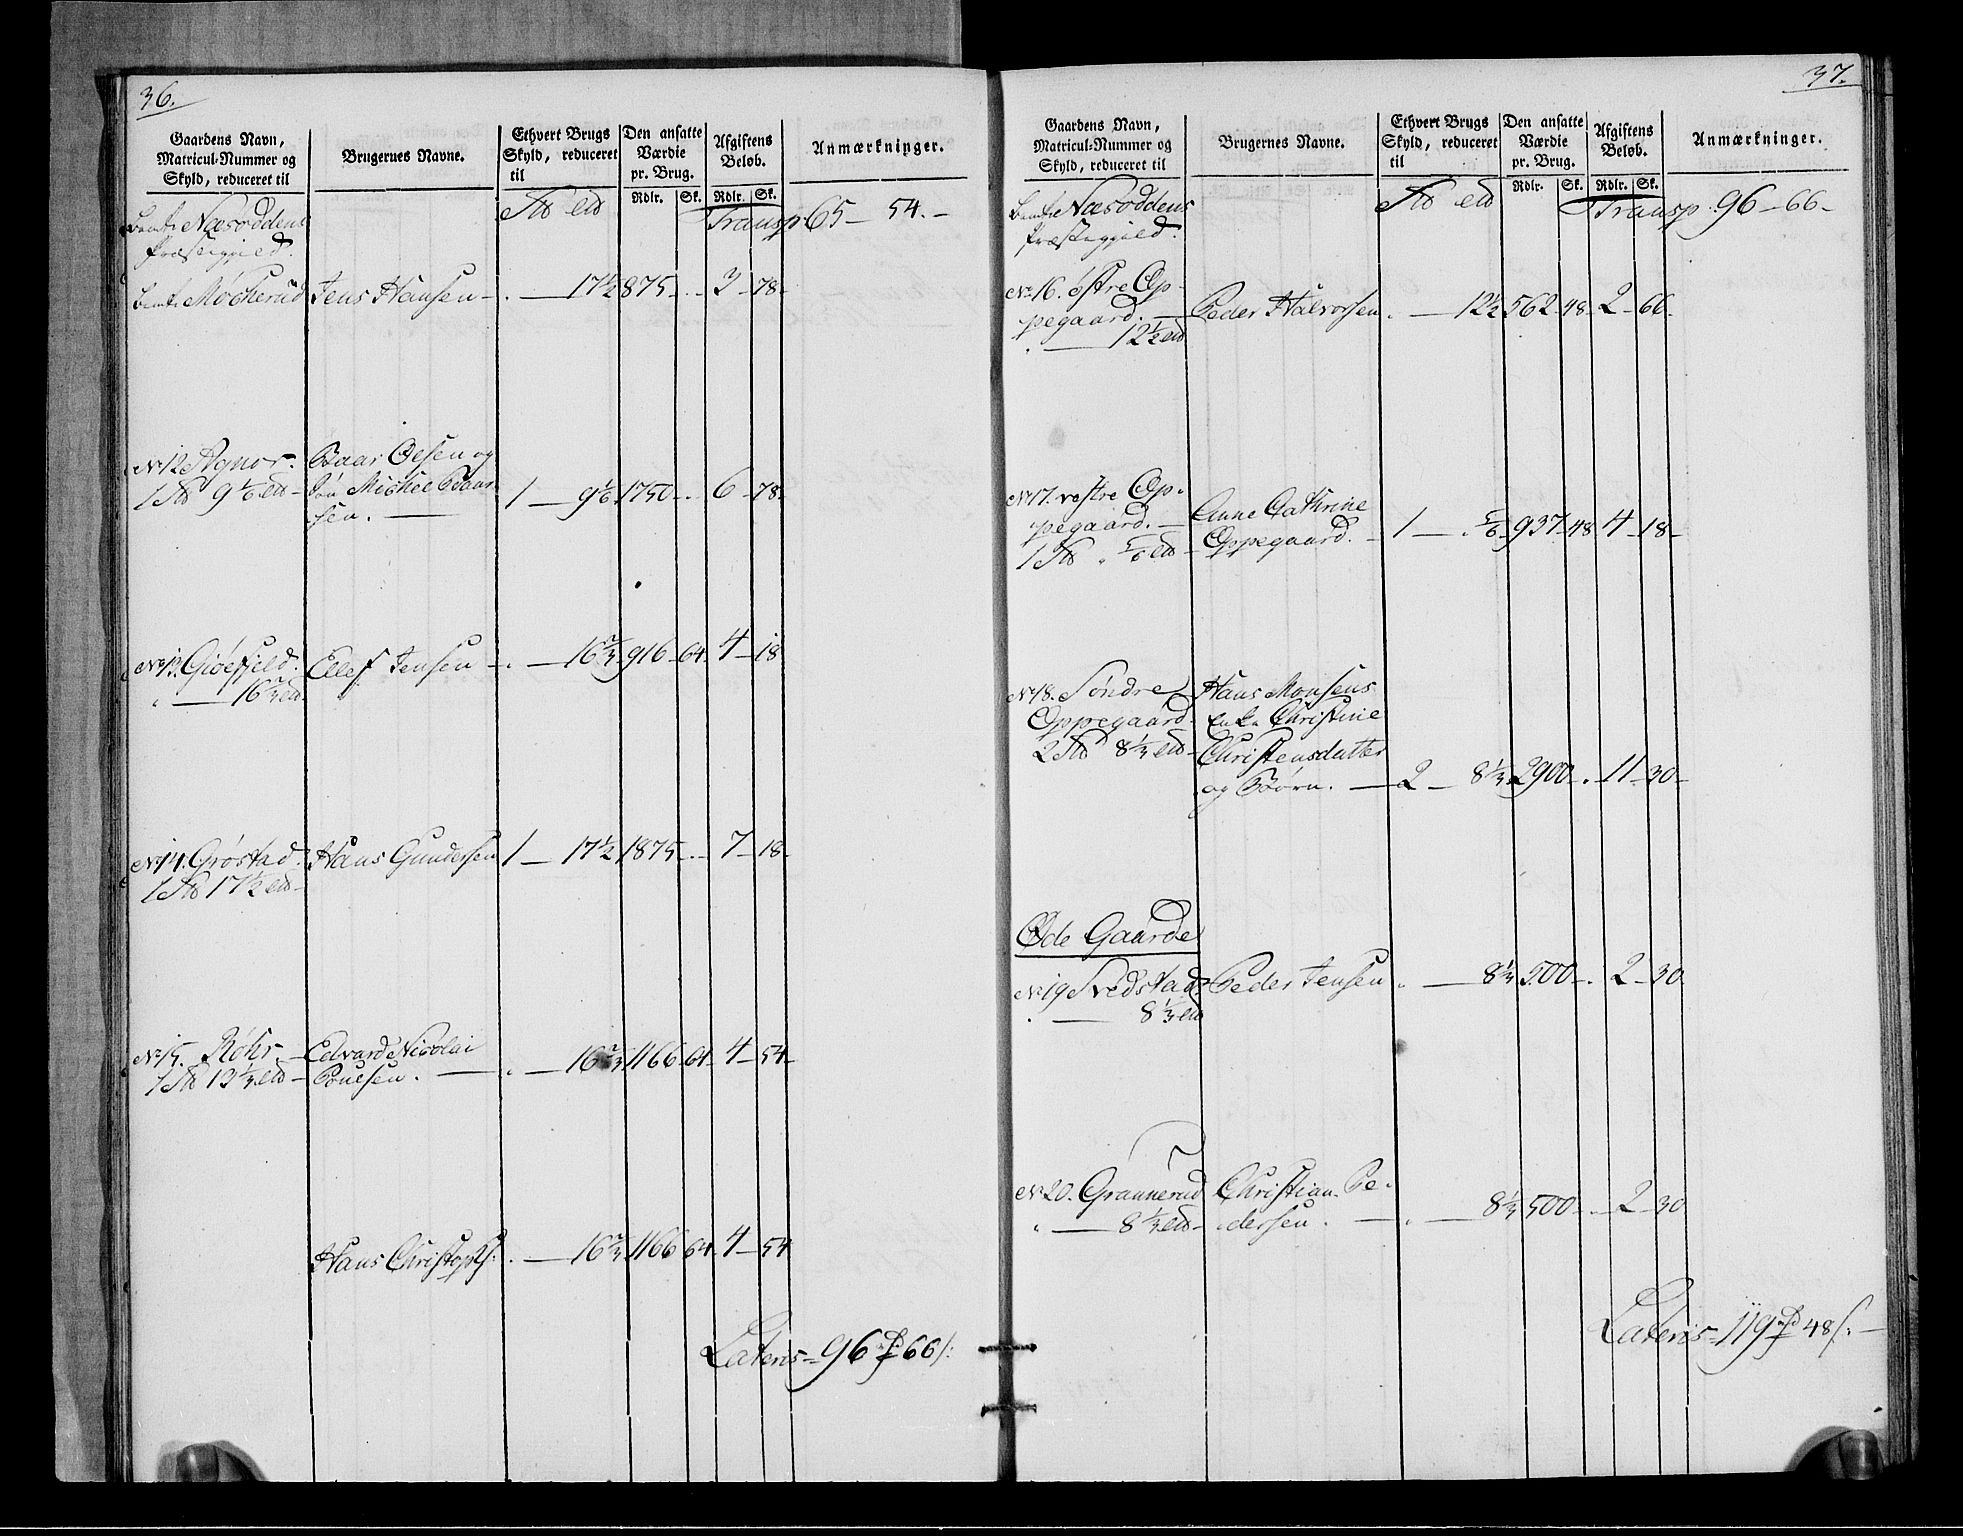 36.
Gaardens Navn, Matricul-Nummer og Skyld, reduceret til
Brugernes Navne.
Ethvert Brugs Skyld, reduceret til
Den ansatte Værdie pr. Brug.
Afgiftens Beløb.
Anmærkninger.
Rdlr. Sk. Rdlr. Sk.
Næsoddens
Præstegield.
Transp 65 – 54. –
Mocherud Jens Hansen – . — 17½ 875 – . 3 – 78 –
No 12 Agnor. Baar Oelsen og
9⅙ – Søn Michel Baar-
sen. — 1 — 9⅙ 1750 – . 6 – 78 –
No 13. Giøefjeld. Ellef Jensen – . — 16⅔ 916 – 64. 4 – 18
" — 16⅔
No 14. Grøstad. Hans Gundersen 1 — 17½ 1875 – . 7 – 18 –
17½
No 15. Røhr. – Edvard Nicolai
13⅓ – Pouelsen. — . — 16⅔ 1166 – 64 – 4 – 54 –
Hans Christophs: . — 16⅔ 1166 64 – 4 – 54
Lateris = 96 66 /:
37.
Gaardens Navn, Matricul-Nummer og Skyld, reduceret til
Brugernes Navne.
Ethvert Brugs Skyld, reduceret til
Den ansatte Værdie pr. Brug.
Afgiftens Beløb.
Anmærkninger.
Rdlr. Sk. Rdlr. Sk.
Næsoddens
Præstegield.
Transp: 96 – 66 –
No 16. østre Op-
pegaard. — Peder Halvorsen . — 12½ 562 – 48 – 2 – 66 –
. — 12½
No 17. vestre Op-
pegaard. —
Anne Cathrine
Oppegaard. – 1 — . ⅚ – 937 – 48 4 – 18 –
No 18. Søndre
Oppegaard.
8⅓ –
Hans Monsens
Enke Christine
Christensdatter
og Børn. — 2 — 8⅓ 2900 – . 11 – 30 –
Øde Gaarde
No 19 Svedstad Peder Jensen . — 8⅓ 500 – . 2 – 30
. — 8⅓
No 20. Grannerud Christian Pe-
" — 8⅓ – dersen. — . — 8⅓ 500 – . 2 – 30
Lateris = 119 48 /: —